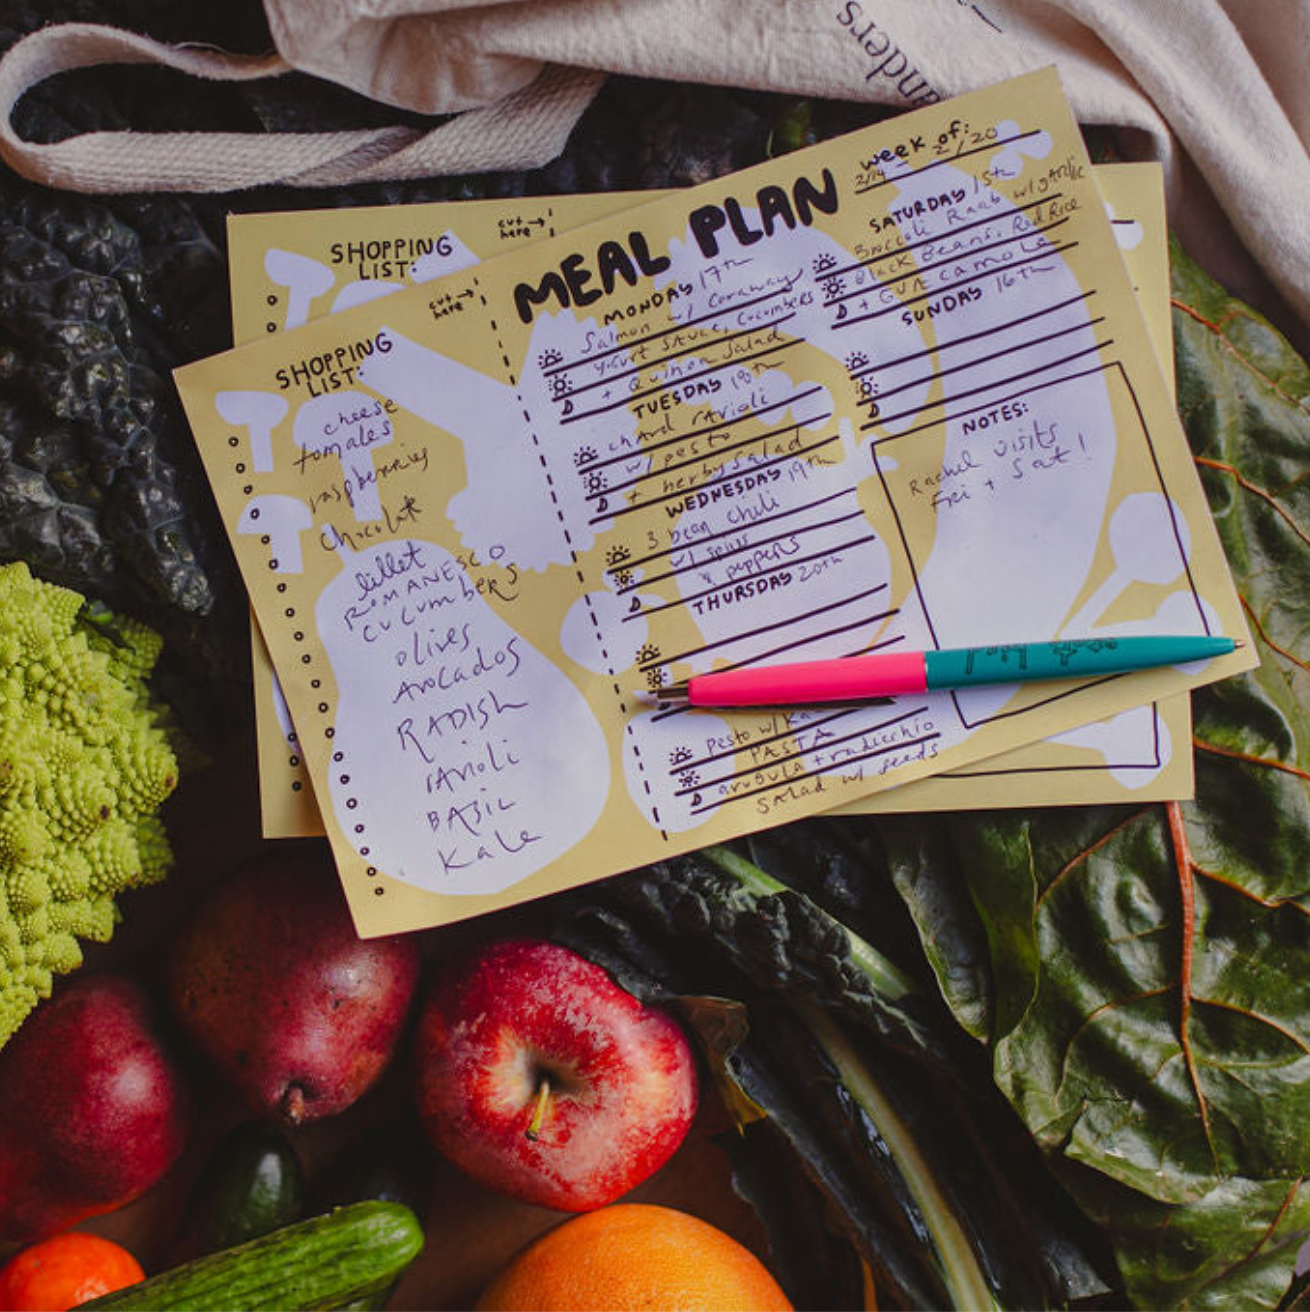 anders
SHOPPING
LIST:
cut
here
SHOPPING
LIST:
cut
here
cheese
tomales
raspberries
chocolate
lillet
ROMANESCO
CUCUMBERS
olives
AVOCADOS
RADISH
rAvioli
BASIL
Kale
MEAL PLAN
MONDAY 17th
Salmon w/ Caraway
yogurt sauce, Cucumbers
+ Quinoa Salad
D
TUESDAY 18th
chard rAvioli
w/ pesto
D + herby Salad
WEDNESDAY 19th
3 bean chili
w/
D peppers
THURSDAY 20th
pesto w/ Ka
PASTA
D arugula + radicchio
Salad w/ seeds
week of:
2/14 - 2/20
SATURDAY 15th
Broccoli Raab w/ gArlic
Black Beans, Red Rice
D + GUACamole
SUNDAY 16th
D
NOTES:
Rachel visits
Fri + Sat!